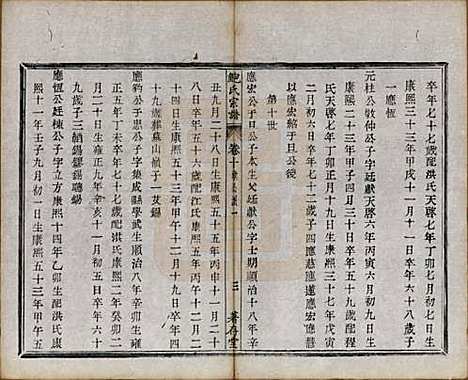 卒年七十七歲配洪氏天啓七年丁卯七月初七日生
康熙三十三年甲戌十一月六日卒年六十八歲子
一應恆
元柱公敦仲公子字廷獻天啓六年丙寅六月六日生
康熙二十三年甲子十月二十八日卒年五十九歲配
氏天啓七年丁卯十月九日生康熙三十七年戊寅
二月初六日卒年七十二歲子四應慈應遴應宏應懸
以應宏紹子旦公後
第十世
應宏公子旦公子本生父廷獻公字士期順治十八年辛
丑九月二十八日生康熙五十五年丙申十一月二十
八日卒年五十六歲配江氏康熙十年辛亥十二月二
十四日生康熙五十三年甲午十二月十六日卒年四
十九歲葬墓山嶺子一茂錫
應豹公子正公子字集成縣學武生順治八年辛卯生雍
正五年丁未卒年七十七歲配洪氏康熙二年癸卯二
月二十日生雍正九年辛亥十一月八日卒年六十
九歲子二炳錫聰錫
應恆公廷棟公子字立方康熙十四年乙卯生配洪氏康
熙十一年壬子九月初一日生康熙五十三年甲午五
鮑氏宗譜
卷十
三
著存堂